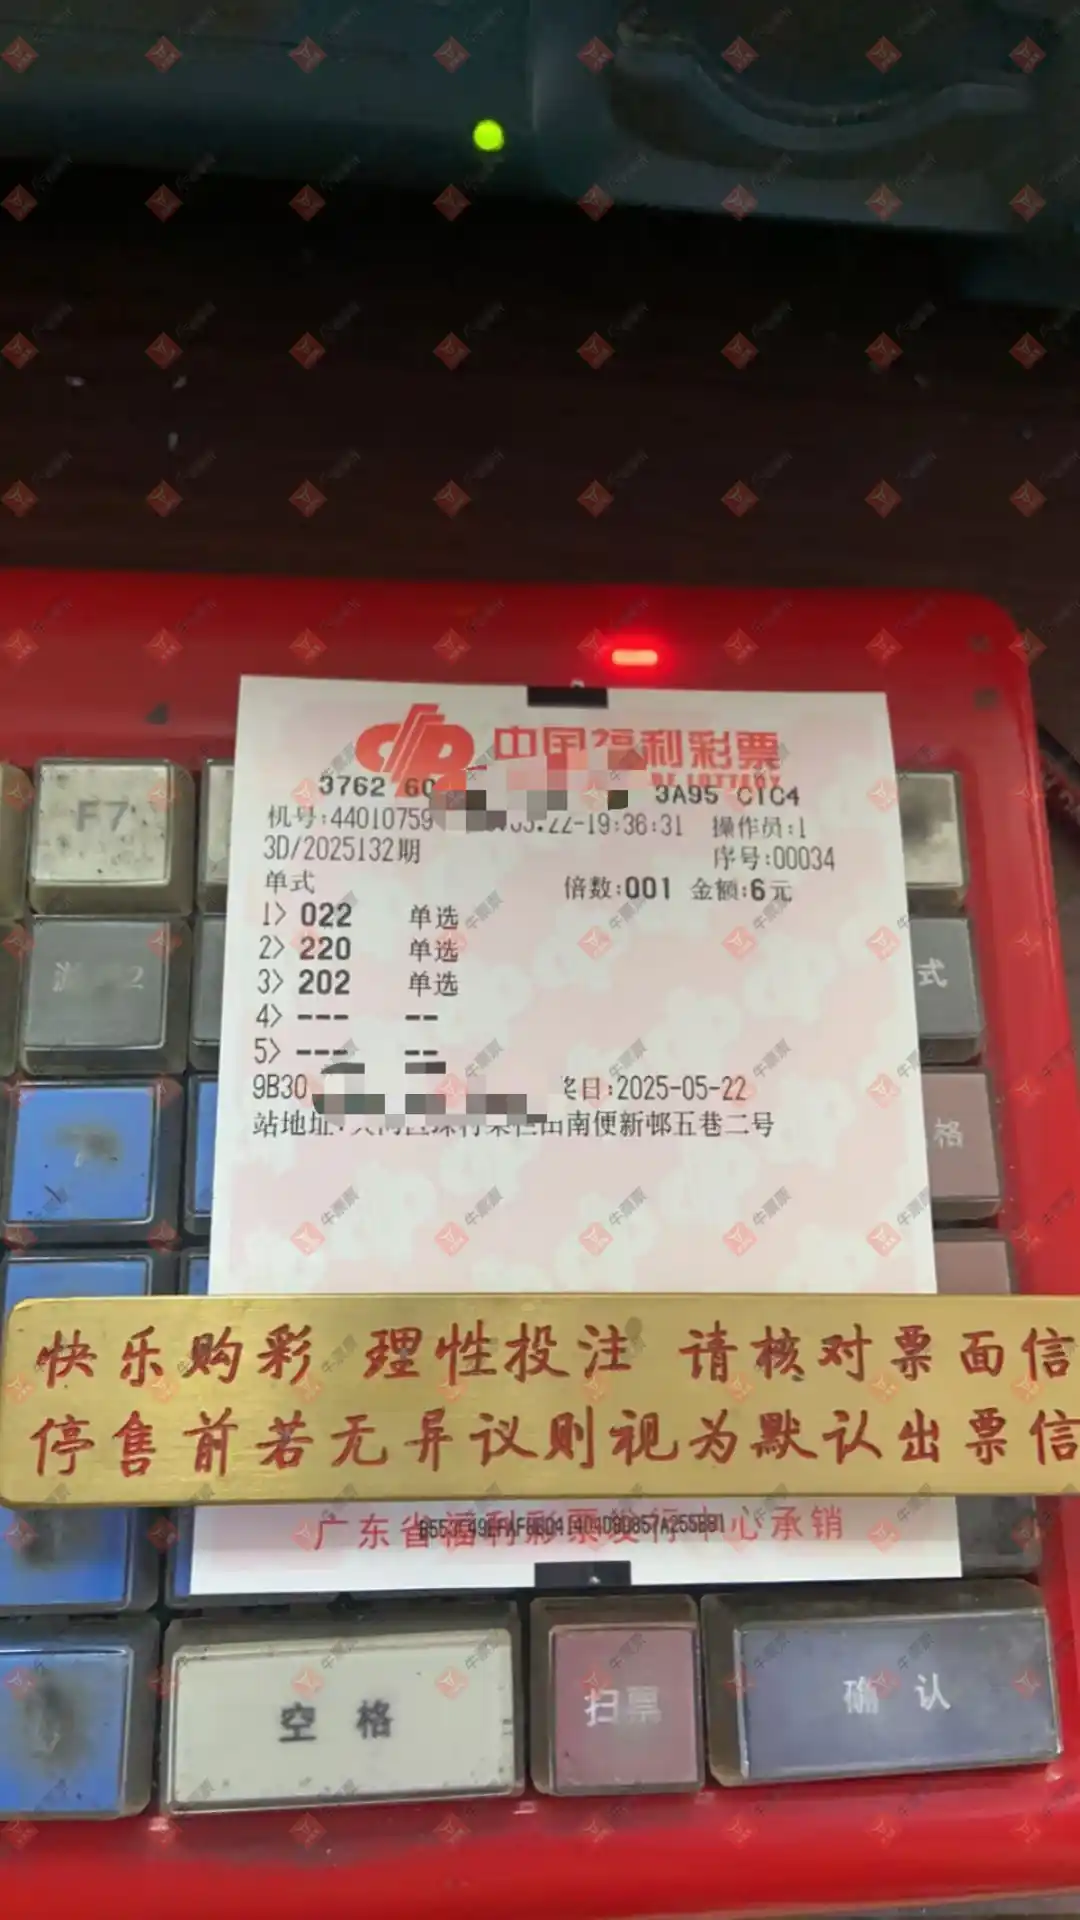 中国福利彩票
3762 60 3A95 C1C4
机号:44010759 22-19:36:31 操作员:1
3D/2025132期 序号:00034
单式 倍数:001 金额:6元
1> 022 单选
2> 220 单选
3> 202 单选
4> --- --
5> --- --
9B30 奖日:2025-05-22
站地址: 南便新邨五巷二号
快乐购彩 理性投注 请核对票面信
停售前若无异议则视为默认出票信
广东省福利彩票发行中心承销
F7
式
格
空格
扫票
确认
牛票票